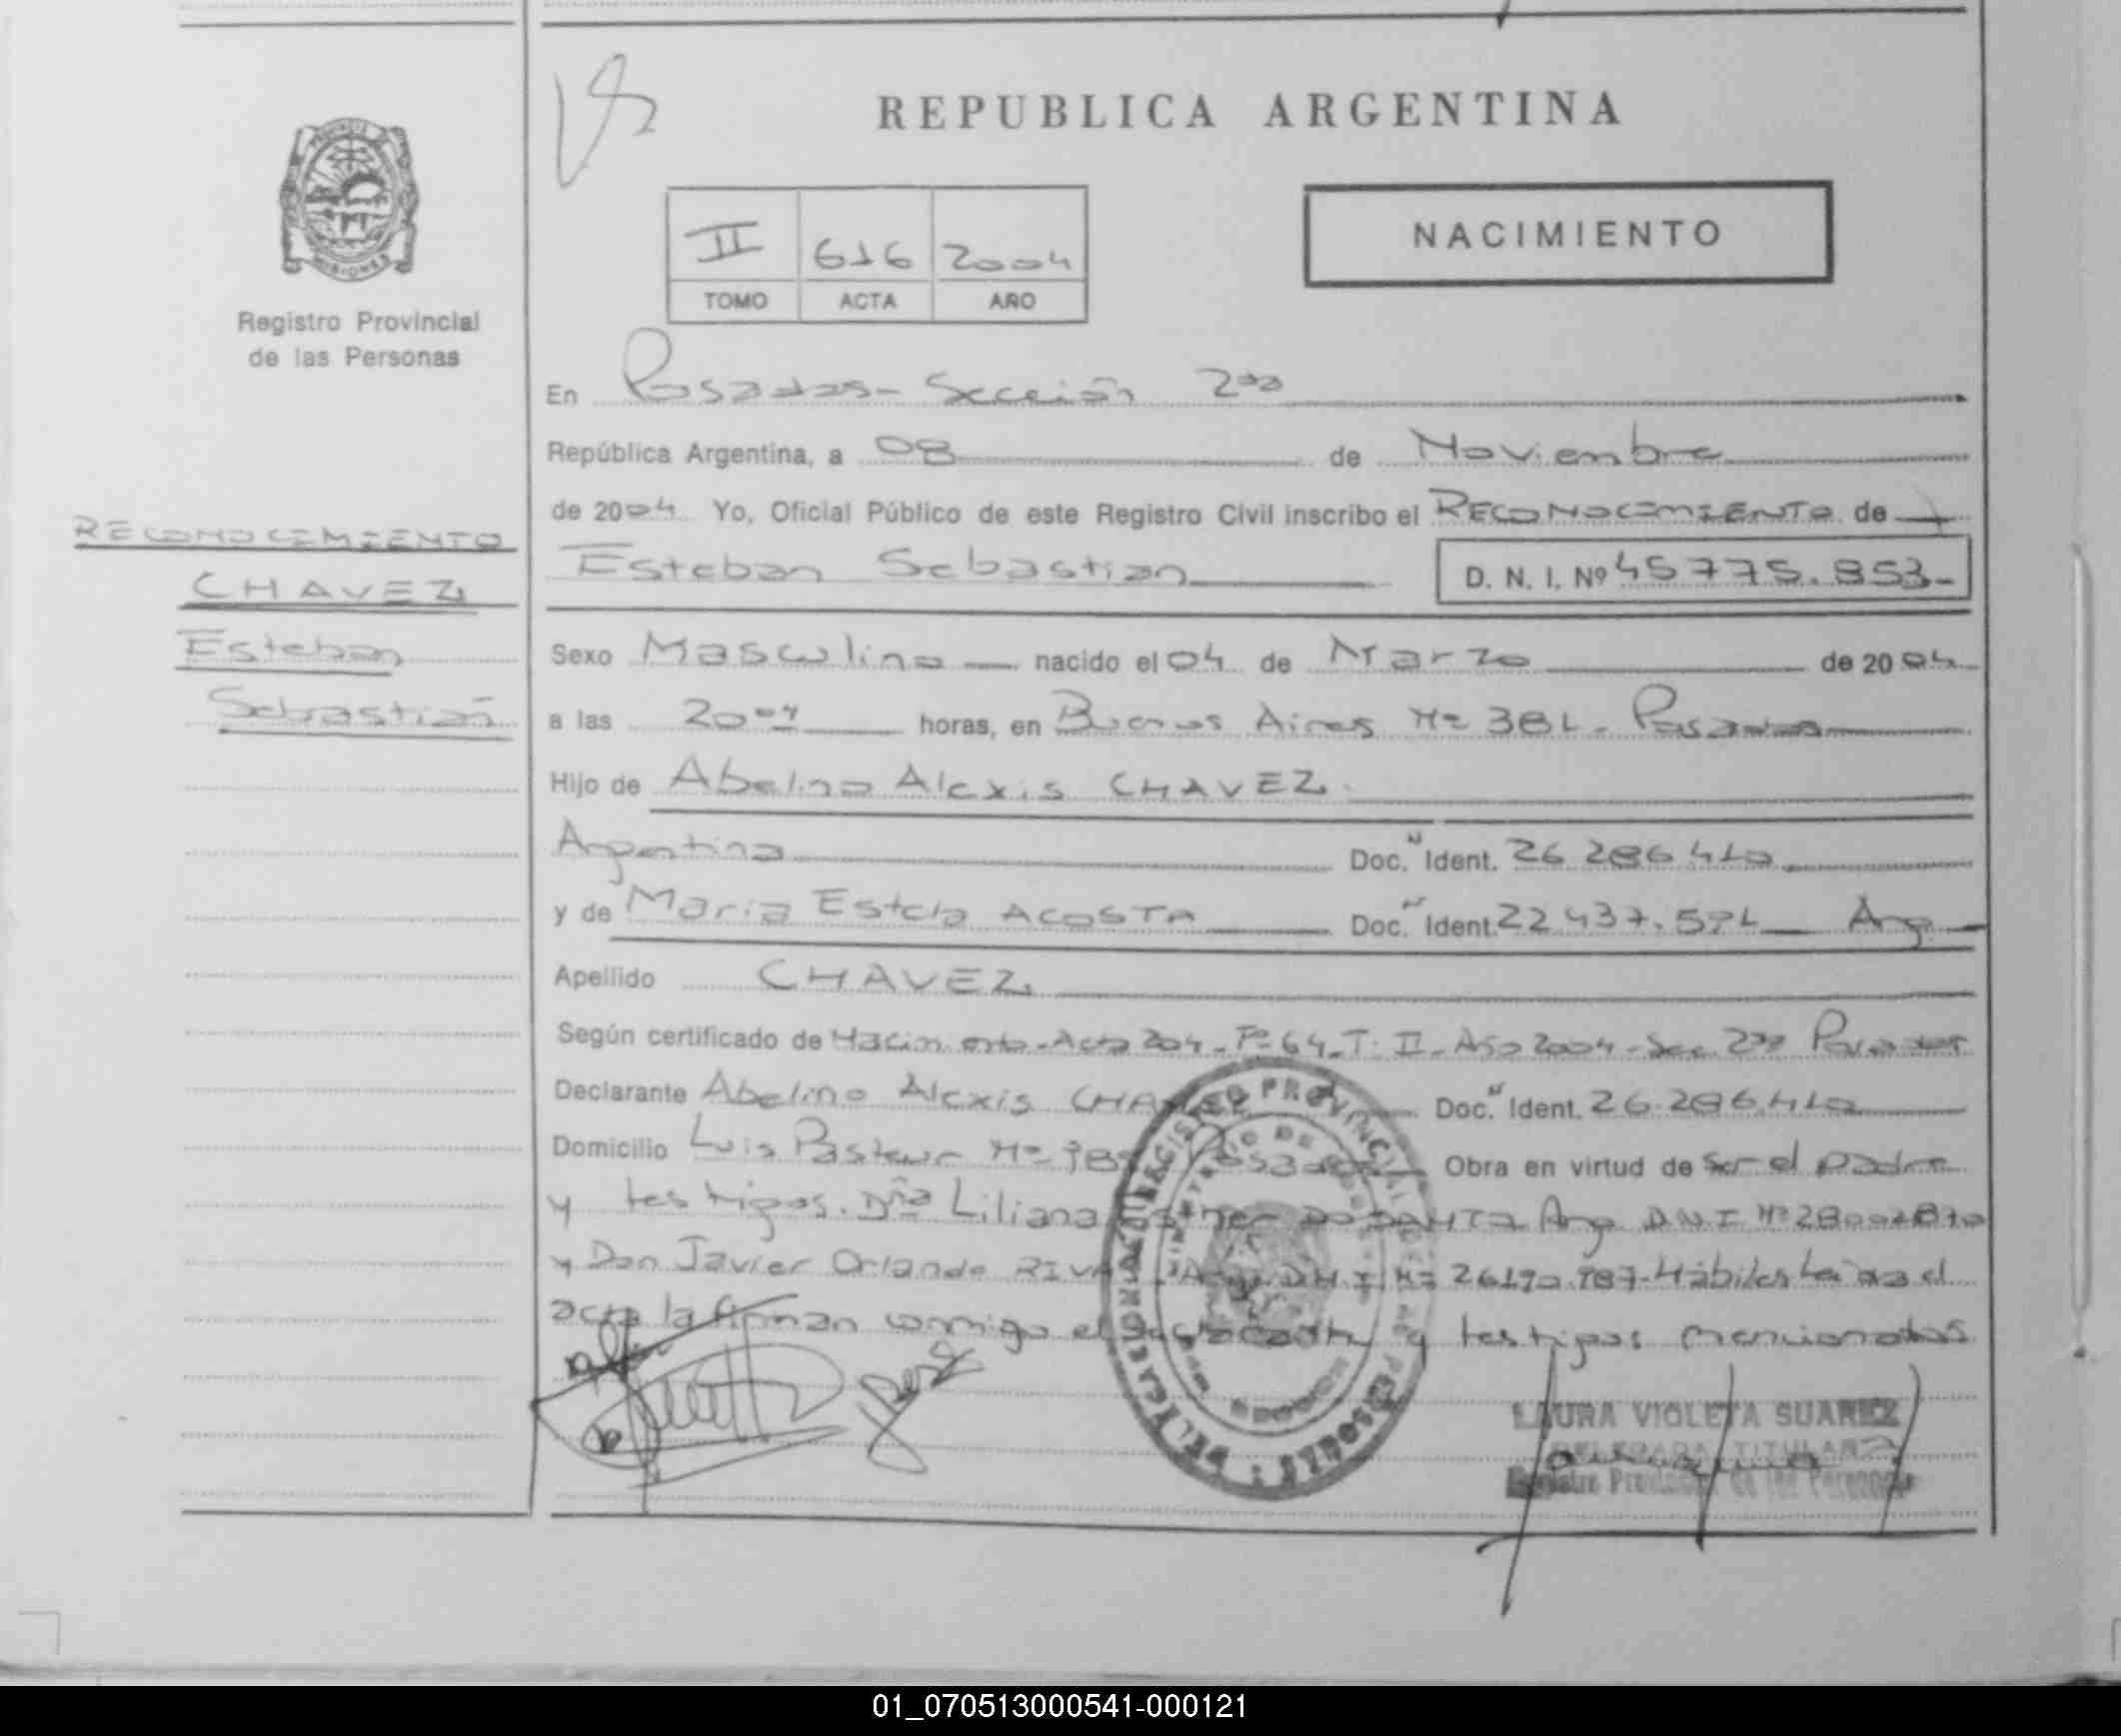 REPUBLICA ARGENTINA
PROVINCIA
MISIONES
Registro Provincial
de las Personas
NACIMIENTO
II 616 2004
TOMO ACTA AÑO
En Posadas - Sección 2da
República Argentina, a 08 de Noviembre
de 2004 Yo, Oficial Público de este Registro Civil inscribo el RECONOCIMIENTO de
Esteban Sebastian D. N. I. Nº 45775.853-
RECONOCIMIENTO
CHAVEZ
Esteban
Sebastian
Sexo Masculino nacido el 04 de Marzo de 2004
a las 20 horas, en Buenos Aires Nº Posadas
Hijo de Abelino Alexis CHAVEZ
Argentino Doc. Ident. 26 286 410
y de Maria Estela ACOSTA Doc. Ident. 22 437. Arg
Apellido CHAVEZ
Según certificado de Nacimiento - Acta 204 - Fº 64 - T: II - Año 2004 - Sec. 2da Posadas
Declarante Abelino Alexis CHAVEZ Doc. Ident. 26.286.410
Domicilio Luis Pasteur Nº Posadas Obra en virtud de Ser el padre
y testigos. Dña Liliana Arg. D.N.I Nº
y Don Javier Orlando Arg. D.N.I Nº Hábiles Leída el
acta la firman conmigo el y testigos mencionados
REGISTRO PROVINCIAL DE LAS PERSONAS
LAURA VIOLETA SUAREZ
DELEGADA TITULAR
Registro Provincial de las Personas
01_070513000541-000121